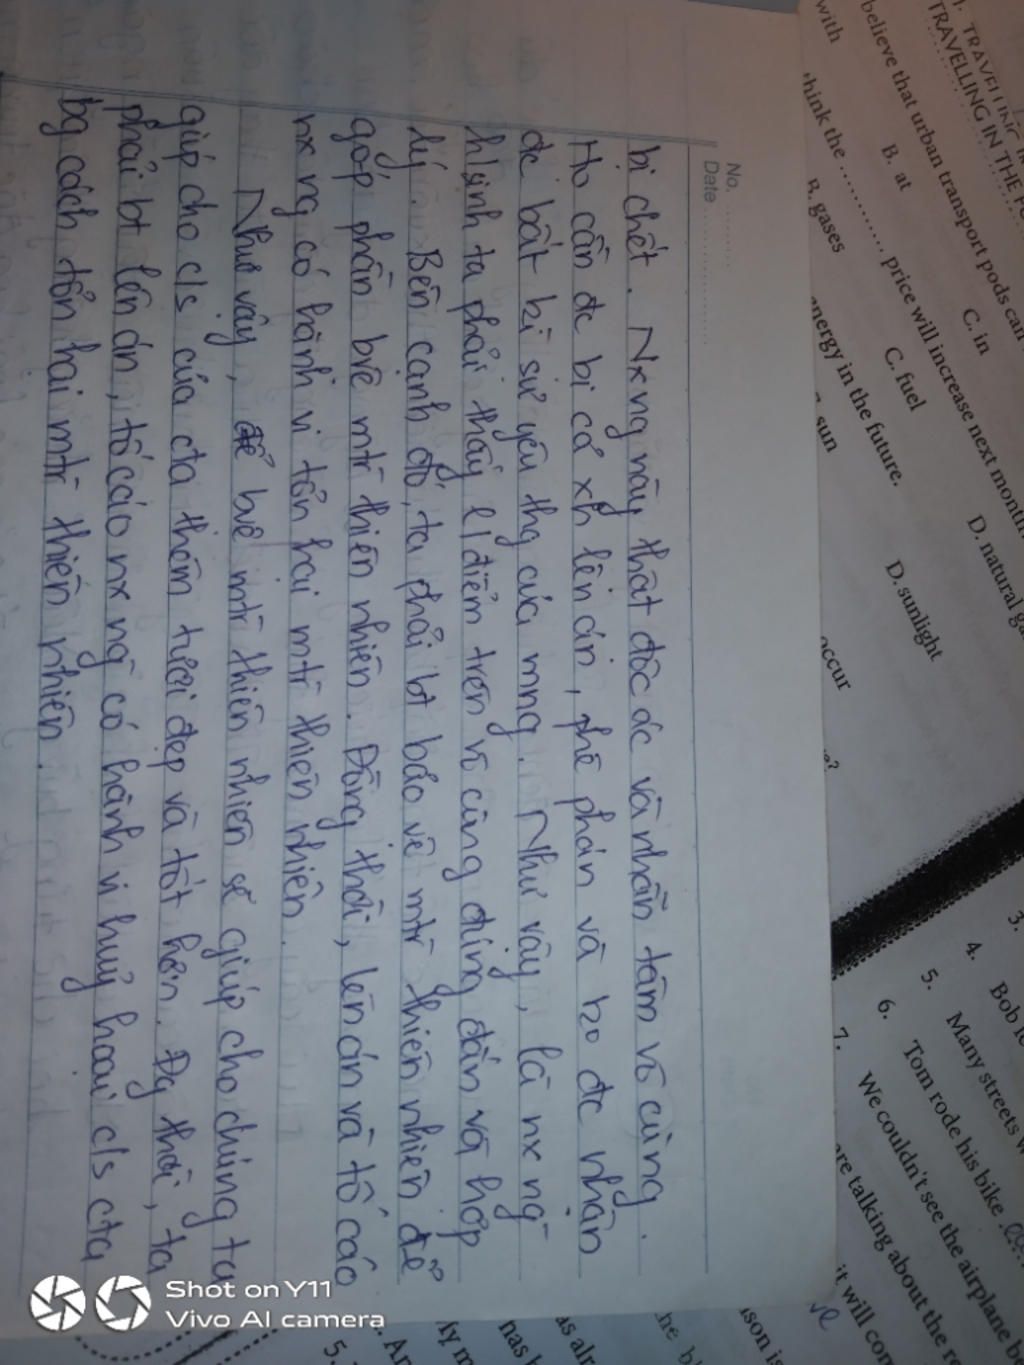 No. ............
Date ....................
bị chết. Nx ng này thật độc ác và nhẫn tâm vô cùng.
Họ cần đc bị cả xh lên án, phê phán và ko đc nhận
đc bất kì sự yêu thg của mng. Như vậy, là nx ng
h/sinh ta phải thấy q/điểm trên vô cùng đúng đắn và hợp
lý. Bên cạnh đó, ta phải bt bảo vệ mtr thiên nhiên để
góp phần bvệ mtr thiên nhiên. Đồng thời, lên án và tố cáo
nx ng có hành vi tổn hại mtr thiên nhiên.
Như vậy, để bvệ mtr thiên nhiên sẽ giúp cho chúng ta
giúp cho c/s của cta thêm tươi đẹp và tốt hơn. Đg thời, ta
phải bt lên án, tố cáo nx ng có hành vi huỷ hoại c/s cta
bg cách tổn hại mtr thiên nhiên.
1. TRAVELLING IN
TRAVELLING IN THE FU
believe that urban transport pods can
with
B. at
C. in
think the ............ price will increase next month
B. gases
C. fuel
D. natural ga
energy in the future.
sun
D. sunlight
occur
3.
4. Bob
5. Many streets w
6. Tom rode his bike
7. We couldn't see the airplane b
are talking about the
it will con
Shot on Y11
Vivo AI camera
5.